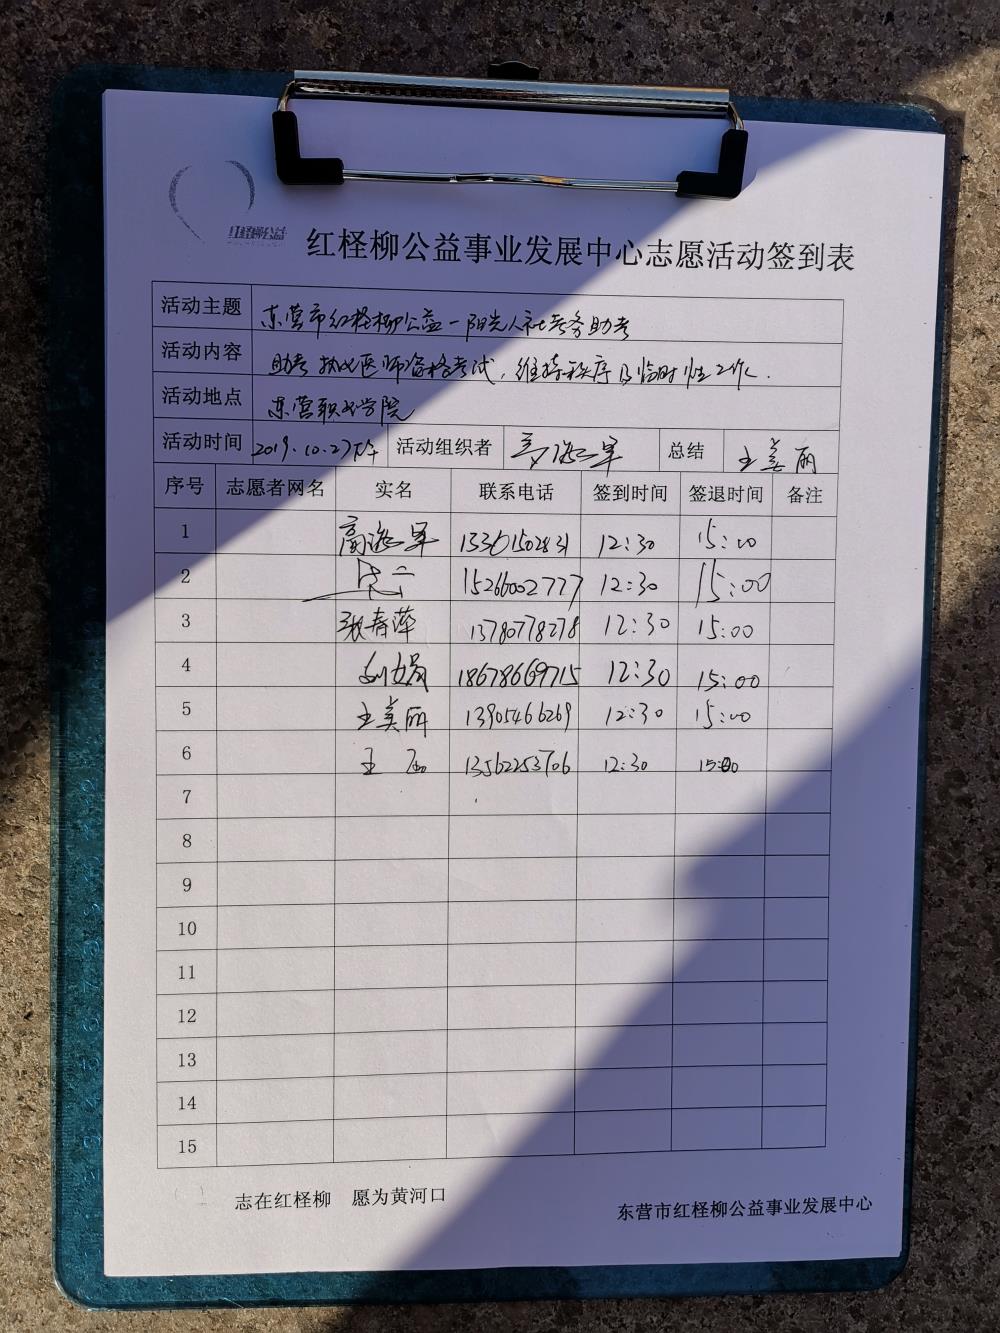 红柽柳公益事业发展中心志愿活动签到表
活动主题 东营市红柽柳公益一阳光人社考务助考
活动内容 助考执业医师资格考试，维持秩序及临时性工作.
活动地点 东营职业学院
活动时间 2019.10.27下午 活动组织者 高海军 总结 王美丽
序号 志愿者网名 实名 联系电话 签到时间 签退时间 备注
1 高海军 13361502831 12:30 15:00
2 15266002777 12:30 15:00
3 张春萍 13780778278 12:30 15:00
4 刘娟 18678669715 12:30 15:00
5 王美丽 13905466269 12:30 15:00
6 王 13562253706 12:30 15:00
7
8
9
10
11
12
13
14
15
志在红柽柳 愿为黄河口
东营市红柽柳公益事业发展中心